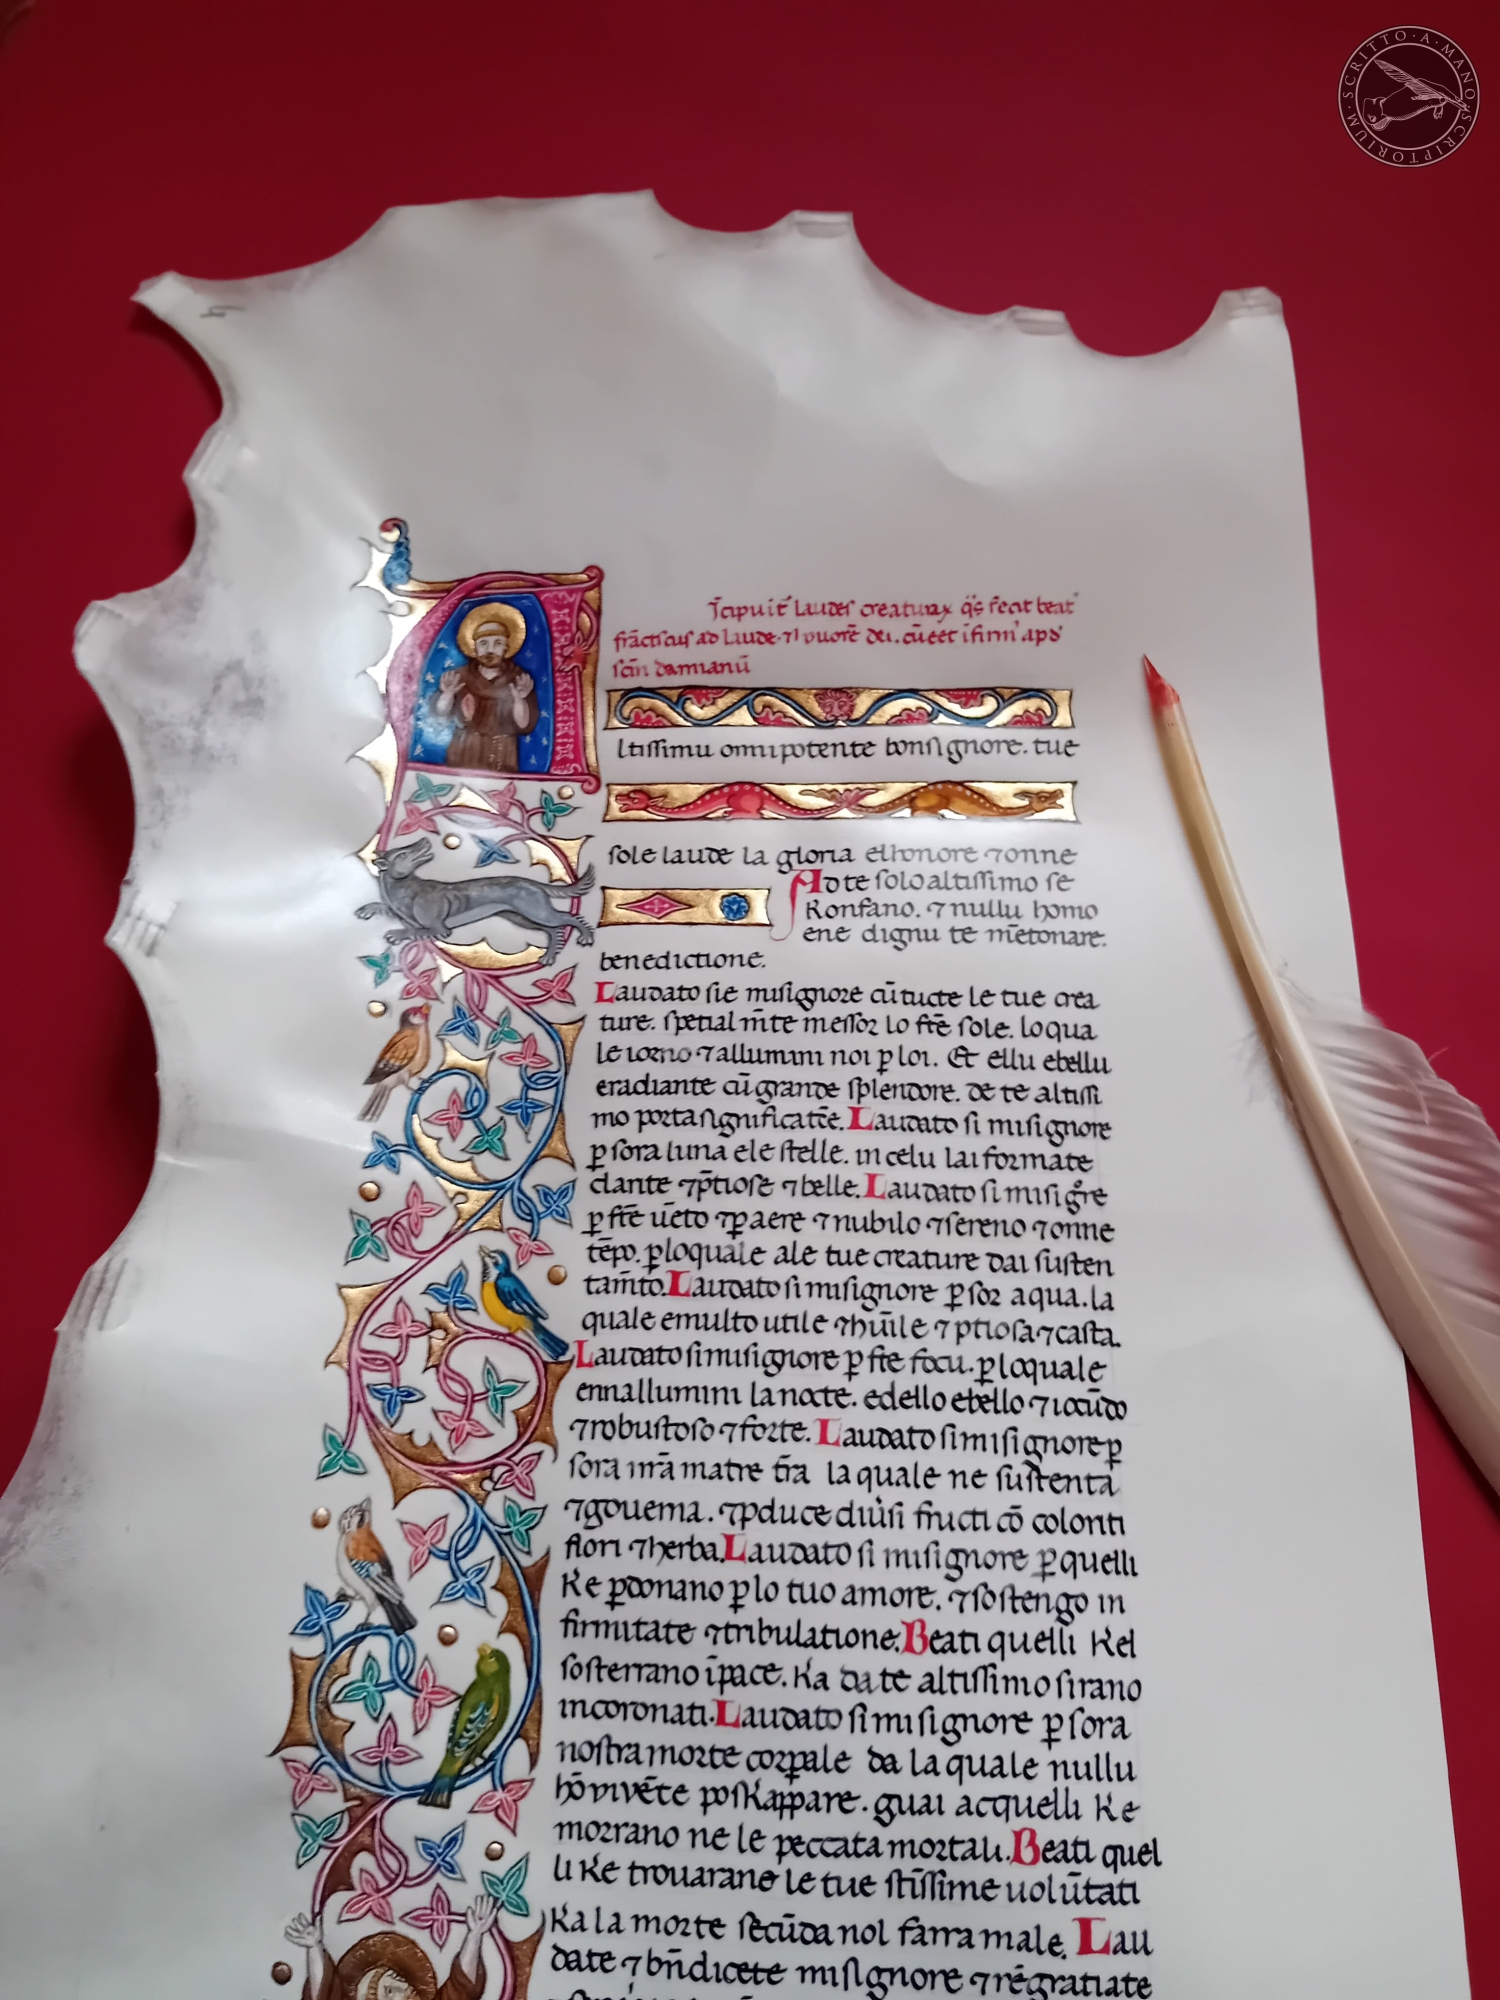 SCRITTO · A · MANO · SCRIPTORIUM ·
Īcipuit Laudes creaturaꝝ q̄s fecit beat᾿
frāciscus ad Laude ⁊ honorē dei. cū eēt ifirm᾿ apd᾿
scm̄ damianū
Altissimu omnipotente bonsignore. tue
sole laude la gloria elhonore ⁊onne
Ad te solo altissimo se
Konfano. ⁊ nullu homo
ene dignu te mētonare.
benedictione.
Laudato sie misignore cū tucte le tue crea
ture. spetialm̄te messor lo frē sole. loqua
le iorno ⁊allumini noi ꝑ loi. Et ellu ebellu
eradiante cū grande splendore. de te altissi
mo porta significatēe. Laudato si misignore
ꝑ sora luna ele stelle. in celu lai formate
clante ⁊p̄tiose ⁊belle. Laudato si misigr̄e
ꝑ frē uēto ⁊ꝑ aere ⁊nubilo ⁊sereno ⁊onne
tēpo. ꝑloquale ale tue creature dai susten
tam̄to. Laudato si misignore ꝑ sor aqua. la
quale emulto utile ⁊hūile ⁊ptiosa⁊casta.
Laudato simisignore ꝑ frē focu. ꝑ loquale
ennallumini la nocte. edello ebello ⁊iocūdo
⁊robustoso ⁊forte. Laudato simisignore ꝑ
sora nrā matre tr̄a la quale ne sustenta
⁊gouerna. ⁊ꝓduce diuisi fructi cō coloriti
fiori ⁊herba. Laudato si misignore ꝑ quelli
Ke ꝑdonano ꝑ lo tuo amore. ⁊sostengo in
firmitate ⁊tribulatione. Beati quelli Kel
sosterrano īpace. Ka da te altissimo sirano
incoronati. Laudato si misignore ꝑ sora
nostra morte corꝑale da la quale nullu
hō vivēte posKappare. guai acquelli Ke
morrano ne le peccata mortali. Beati quel
li Ke trouarane le tue stīssime uolūtati
Ka la morte secūda nol farra male. Lau
date ⁊ bn̄dicete misignore ⁊rēgratiate